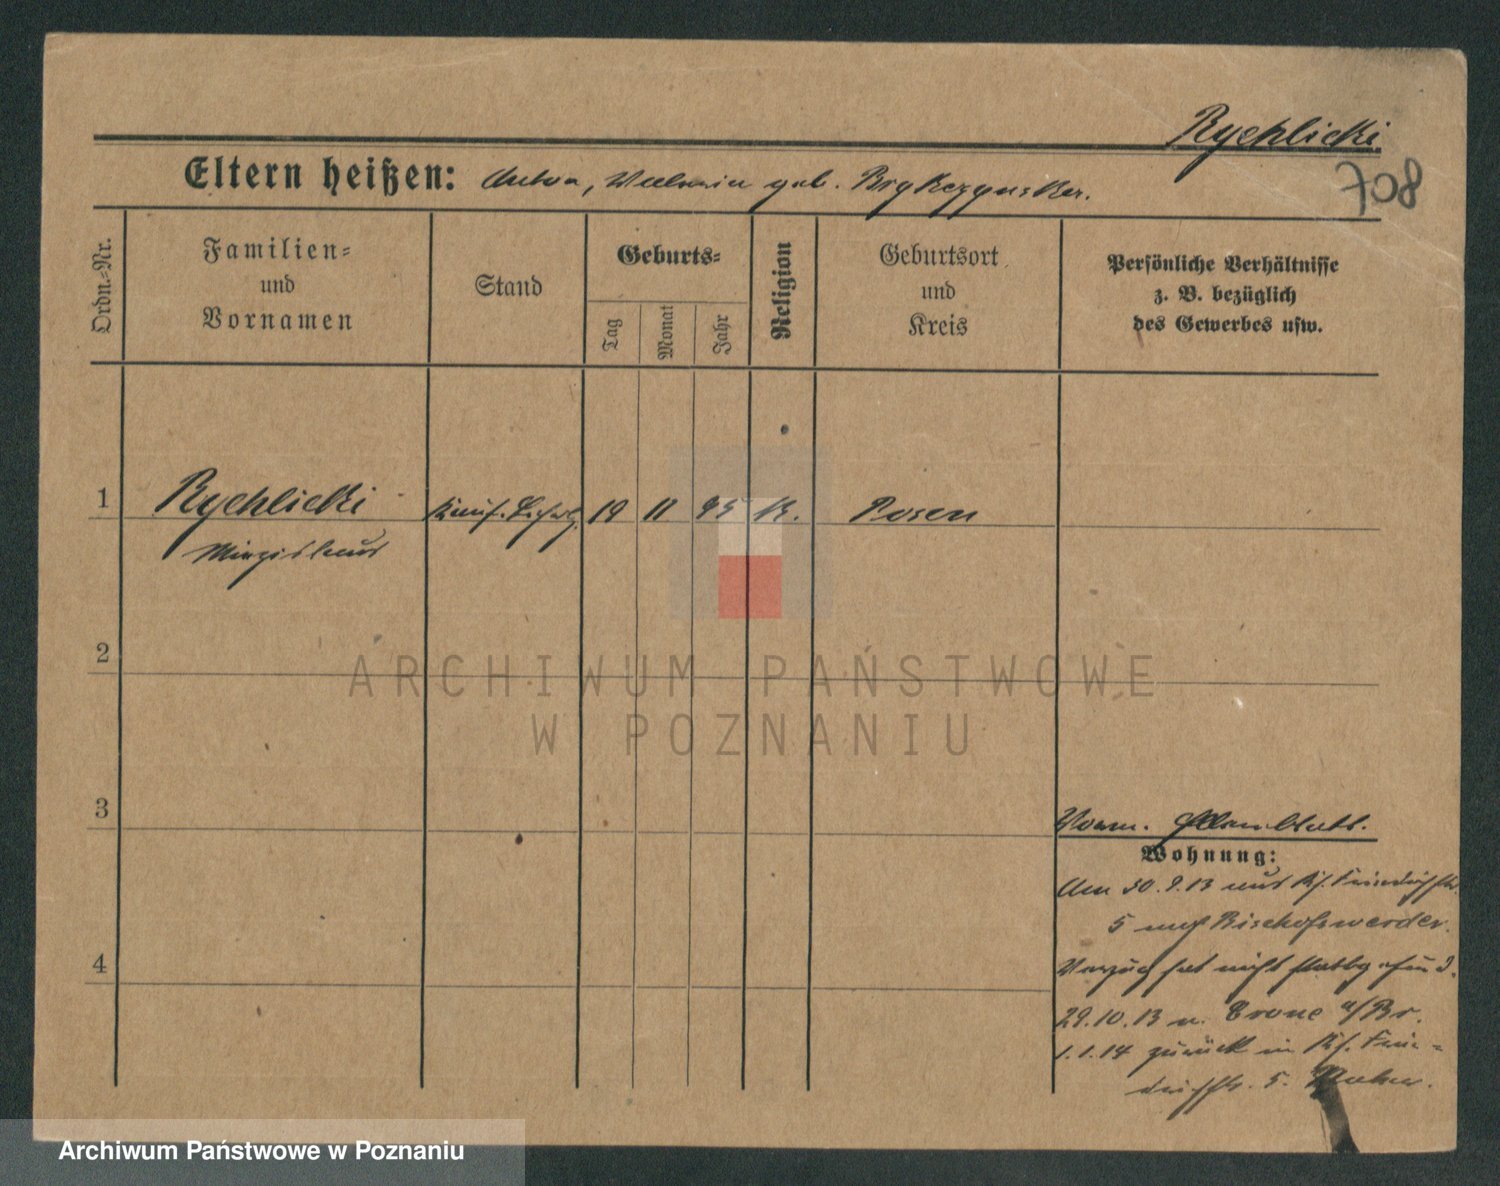 Rychlicki.
708
Eltern heißen: Anton, geb.
Ordn.-Nr.
Familien-
und
Vornamen
Stand
Geburts-
Tag
Monat
Jahr
Religion
Geburtsort
und
Kreis
Persönliche Verhältnisse
z. B. bezüglich
des Gewerbes usw.
1 Rychlicki 19 11 95 K. Posen
Miezislaus
2
ARCHIWUM PAŃSTWOWE
W POZNANIU
3
Wohnung:
Am 30.9.13 aus Kf. Friedrichstr.
5 nach Bischofswerder.
Verzug hat nicht stattgefund.
4
29.10.13 n. Crone a/Br.
1.1.14 zurück in Kf. Frie-
drichstr. 5.
Archiwum Państwowe w Poznaniu